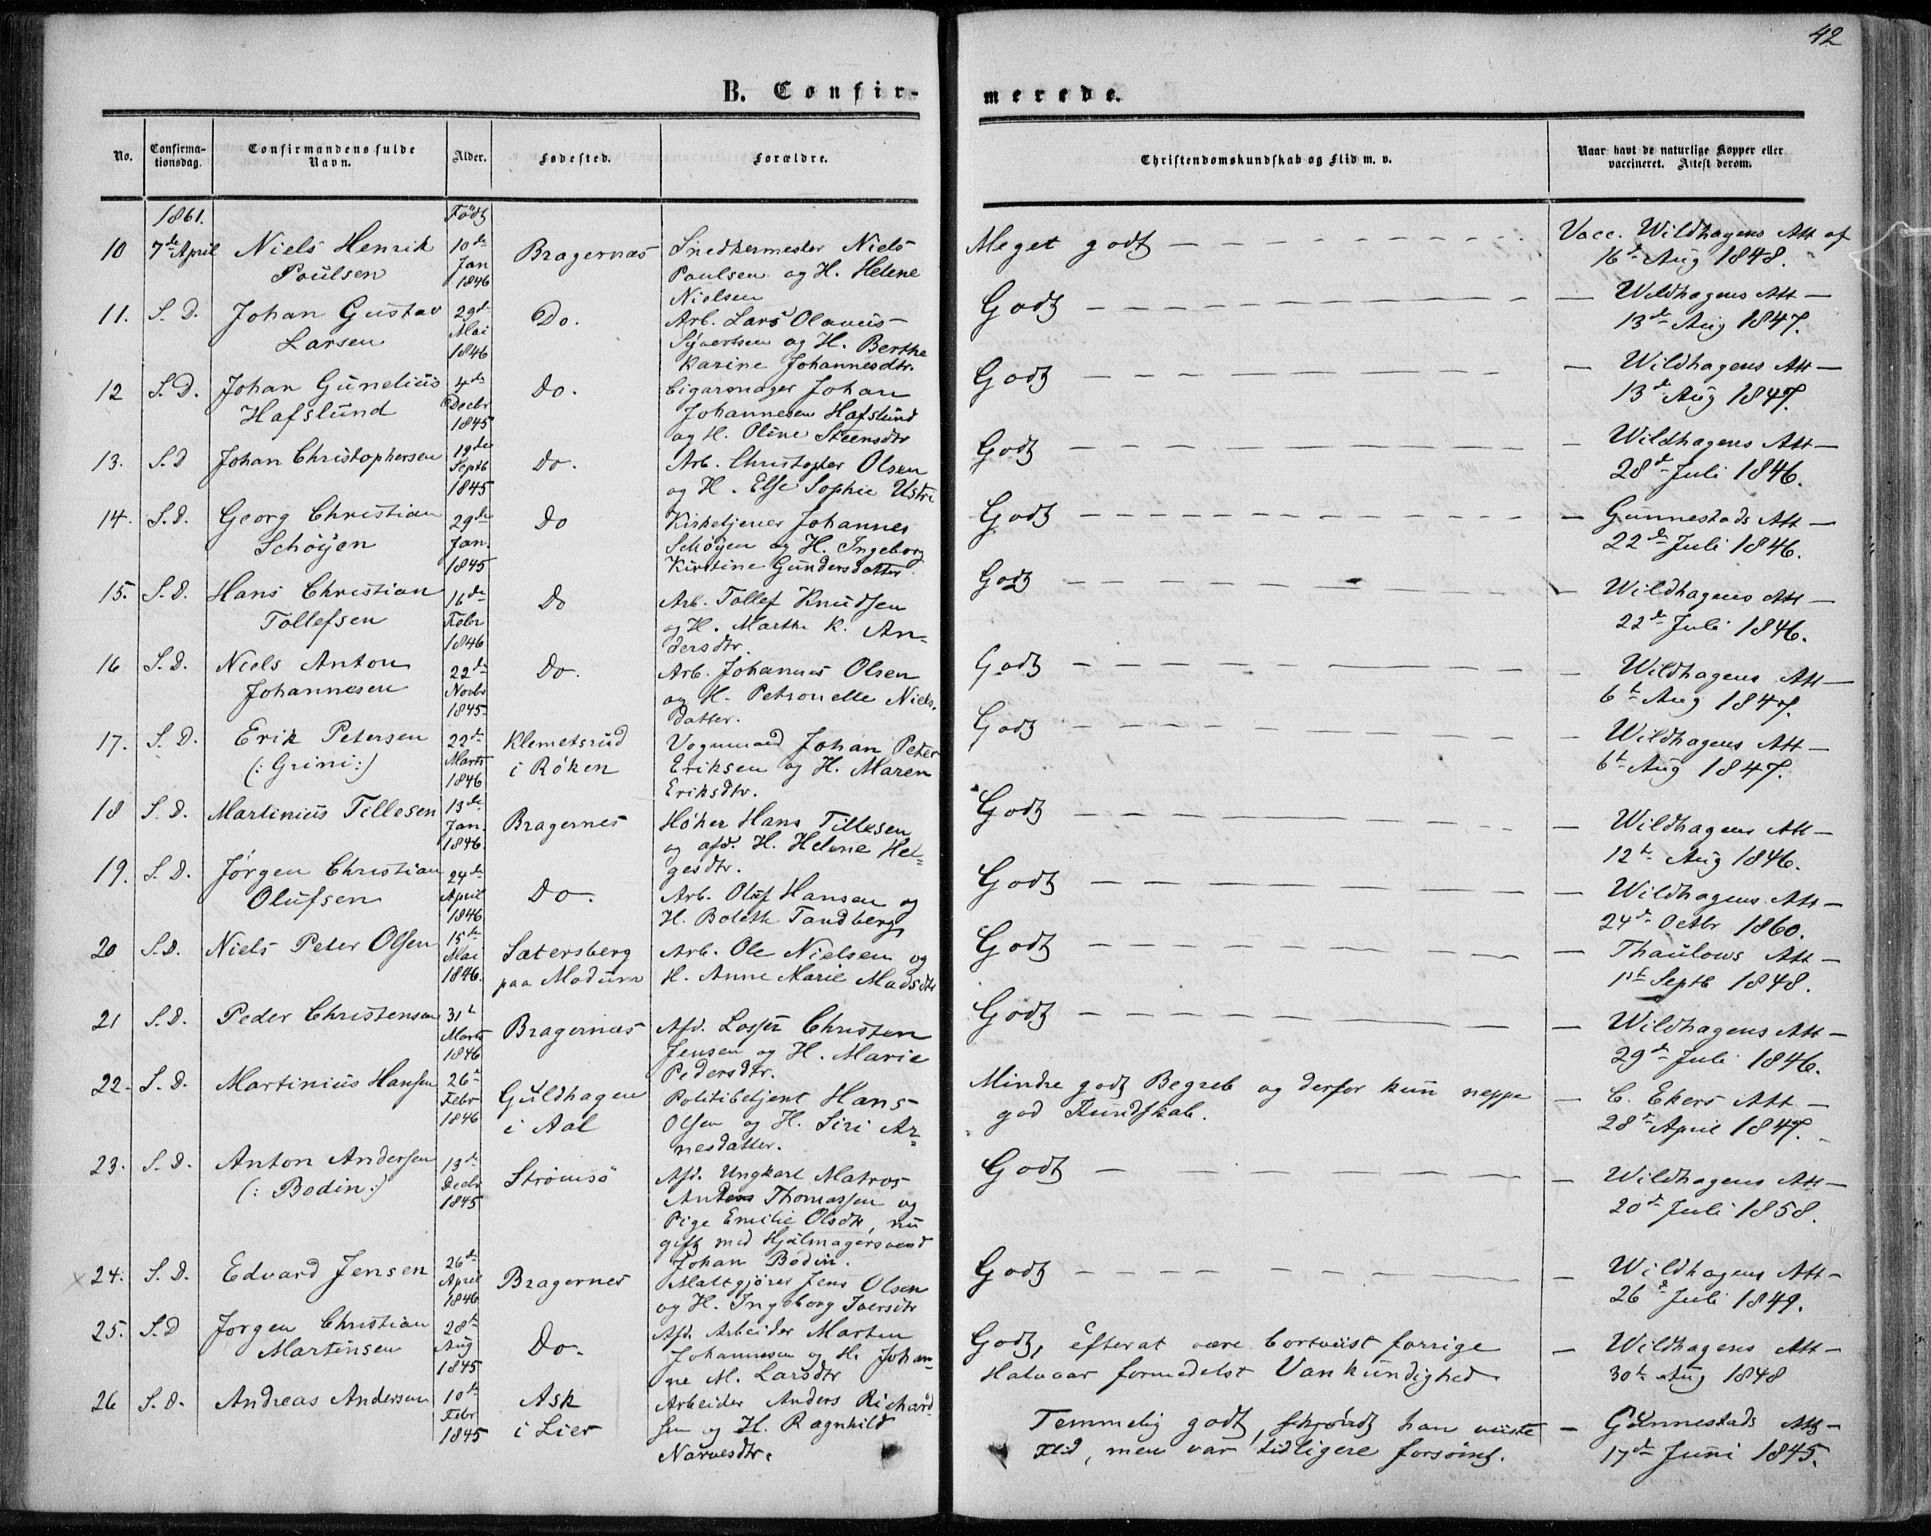 42
B. Confir-
merede.
No.
Confirma-
tionsdag.
Confirmandens fulde
Navn.
Alder.
Fødested.
Forældre.
Christendomskundskab og Flid m. v.
Naar havt de naturlige Kopper eller
vaccineret. Attest derom.
1861.
Født
10 7de April Niels Henrik Poulsen 10de Jan 1846 Bragernæs Snedkermester Niels Paulsen og H. Helene Nielsen Meget godt Vacc. Wildhagens Att af 16t Aug 1848.
11. S. D. Johan Gustav Larsen 29de Mai 1846 Do. Arb. Lars Olavus Syvertsen og H. Berthe Karine Johannesdtr. Godt Wildhagens Att 13de Aug 1847.
12 S. D. Johan Gunelius Hafslund 4de Decbr 1845 Do. Cigarmager Johan Johannesen Hafslund og H. Oline Steensdtr Godt Wildhagens Att 13de Aug 1847.
13. S. D Johan Christophersen 19de Septb 1845 Do. Arb. Christopher Olsen og H. Else Sophie Ustri Godt Wildhagens Att 28de Juli 1846.
14. S. D. Georg Christian Schøyen 29de Jan. 1845 Do Kirketjener Johannes Schøyen og H. Ingeborg Kirstine Gundersdatter Godt Gunnestads Att 22de Juli 1846.
15. S. D. Hans Christian Tollefsen 16de Febr 1846 Do Arb. Tollef Knudsen og H. Marthe K. An-
dersdtr. Godt Wildhagens Att 22de Juli 1846.
16 S. D. Niels Anton Johannesen 22de Novbr 1845. Do. Arb. Johannes Olsen og H. Petronelle Niels-
datter. Godt Wildhagens Att 6t Aug 1847.
17. S. D. Erik Petersen (: Grini :) 22de Marts 1846 Klemetsrud i Røken Vognmand Johan Peter Eriksen og H. Maren Eriksdtr. Godt Wildhagens Att 6t Aug 1847.
18 S. D. Martinius Tillesen 13de Jan. 1846 Bragernes Høker Hans Tillesen og afd. H. Helene Hel-
gesdtr. Godt Wildhagens Att 12t Aug 1846.
19. S. D. Jørgen Christian Olufsen 24de April 1846 Do. Arb. Oluf Hansen og H. Boleth Tandberg Godt Wildhagens Att 24de Octbr 1860.
20 S. D. Niels Peter Olsen 15de Mai 1846. Sætersberg paa Modum Arb. Ole Nielsen og H. Anne Marie Madsdtr Godt Thaulows Att 1st Septb 1848.
21 S. D. Peder Christensen 31t Marts 1846 Bragernæs Afd. Losser Christen Jensen og H. Marie Pedersdtr. Godt Wildhagens Att 29de Juli 1846.
22. S. D. Martinius Hansen 26t Febr 1846 Guldhagen i Aal Politibetjent Hans Olsen og H. Siri Ar-
nesdatter. Mindre godt Begreb og derfor kun neppe god Kundskab. C. Ekers Att 28t April 1847.
23. S. D. Anton Andersen (: Bodin :) 13de Decbr 1845 Strømsø Afd. Ungkarl Matros Anders Thomassen og Pige Emilie Olsdtr, nu gift med Hjulmagersvend Johan Bodin. Godt Wildhagens Att 20de Juli 1858.
24. S. D. Edvard Jensen 26de April 1846 Bragernes Maltgjører Jens Olsen og H. Ingeborg Iversdtr Godt Wildhagens Att 26de Juli 1849.
25. S. D Jørgen Christian Martinsen 28t Aug 1845 Do. Afd. Arbeider Marten Johannesen og H. Johan-
ne M. Larsdtr Godt, efterat være bortviist forrige Halvaar formedelst Vankundighed. Wildhagens Att 30t Aug 1848
26 S. D. Andreas Andersen 10de Febr 1845 Ask i Lier Arbeider Anders Richard-
sen og H. Ragnhild Narvesdtr. Temmelig godt, skjøndt han viiste Flid, men var tidligere forsømt. Gunnestads Att 17de Juni 1845.